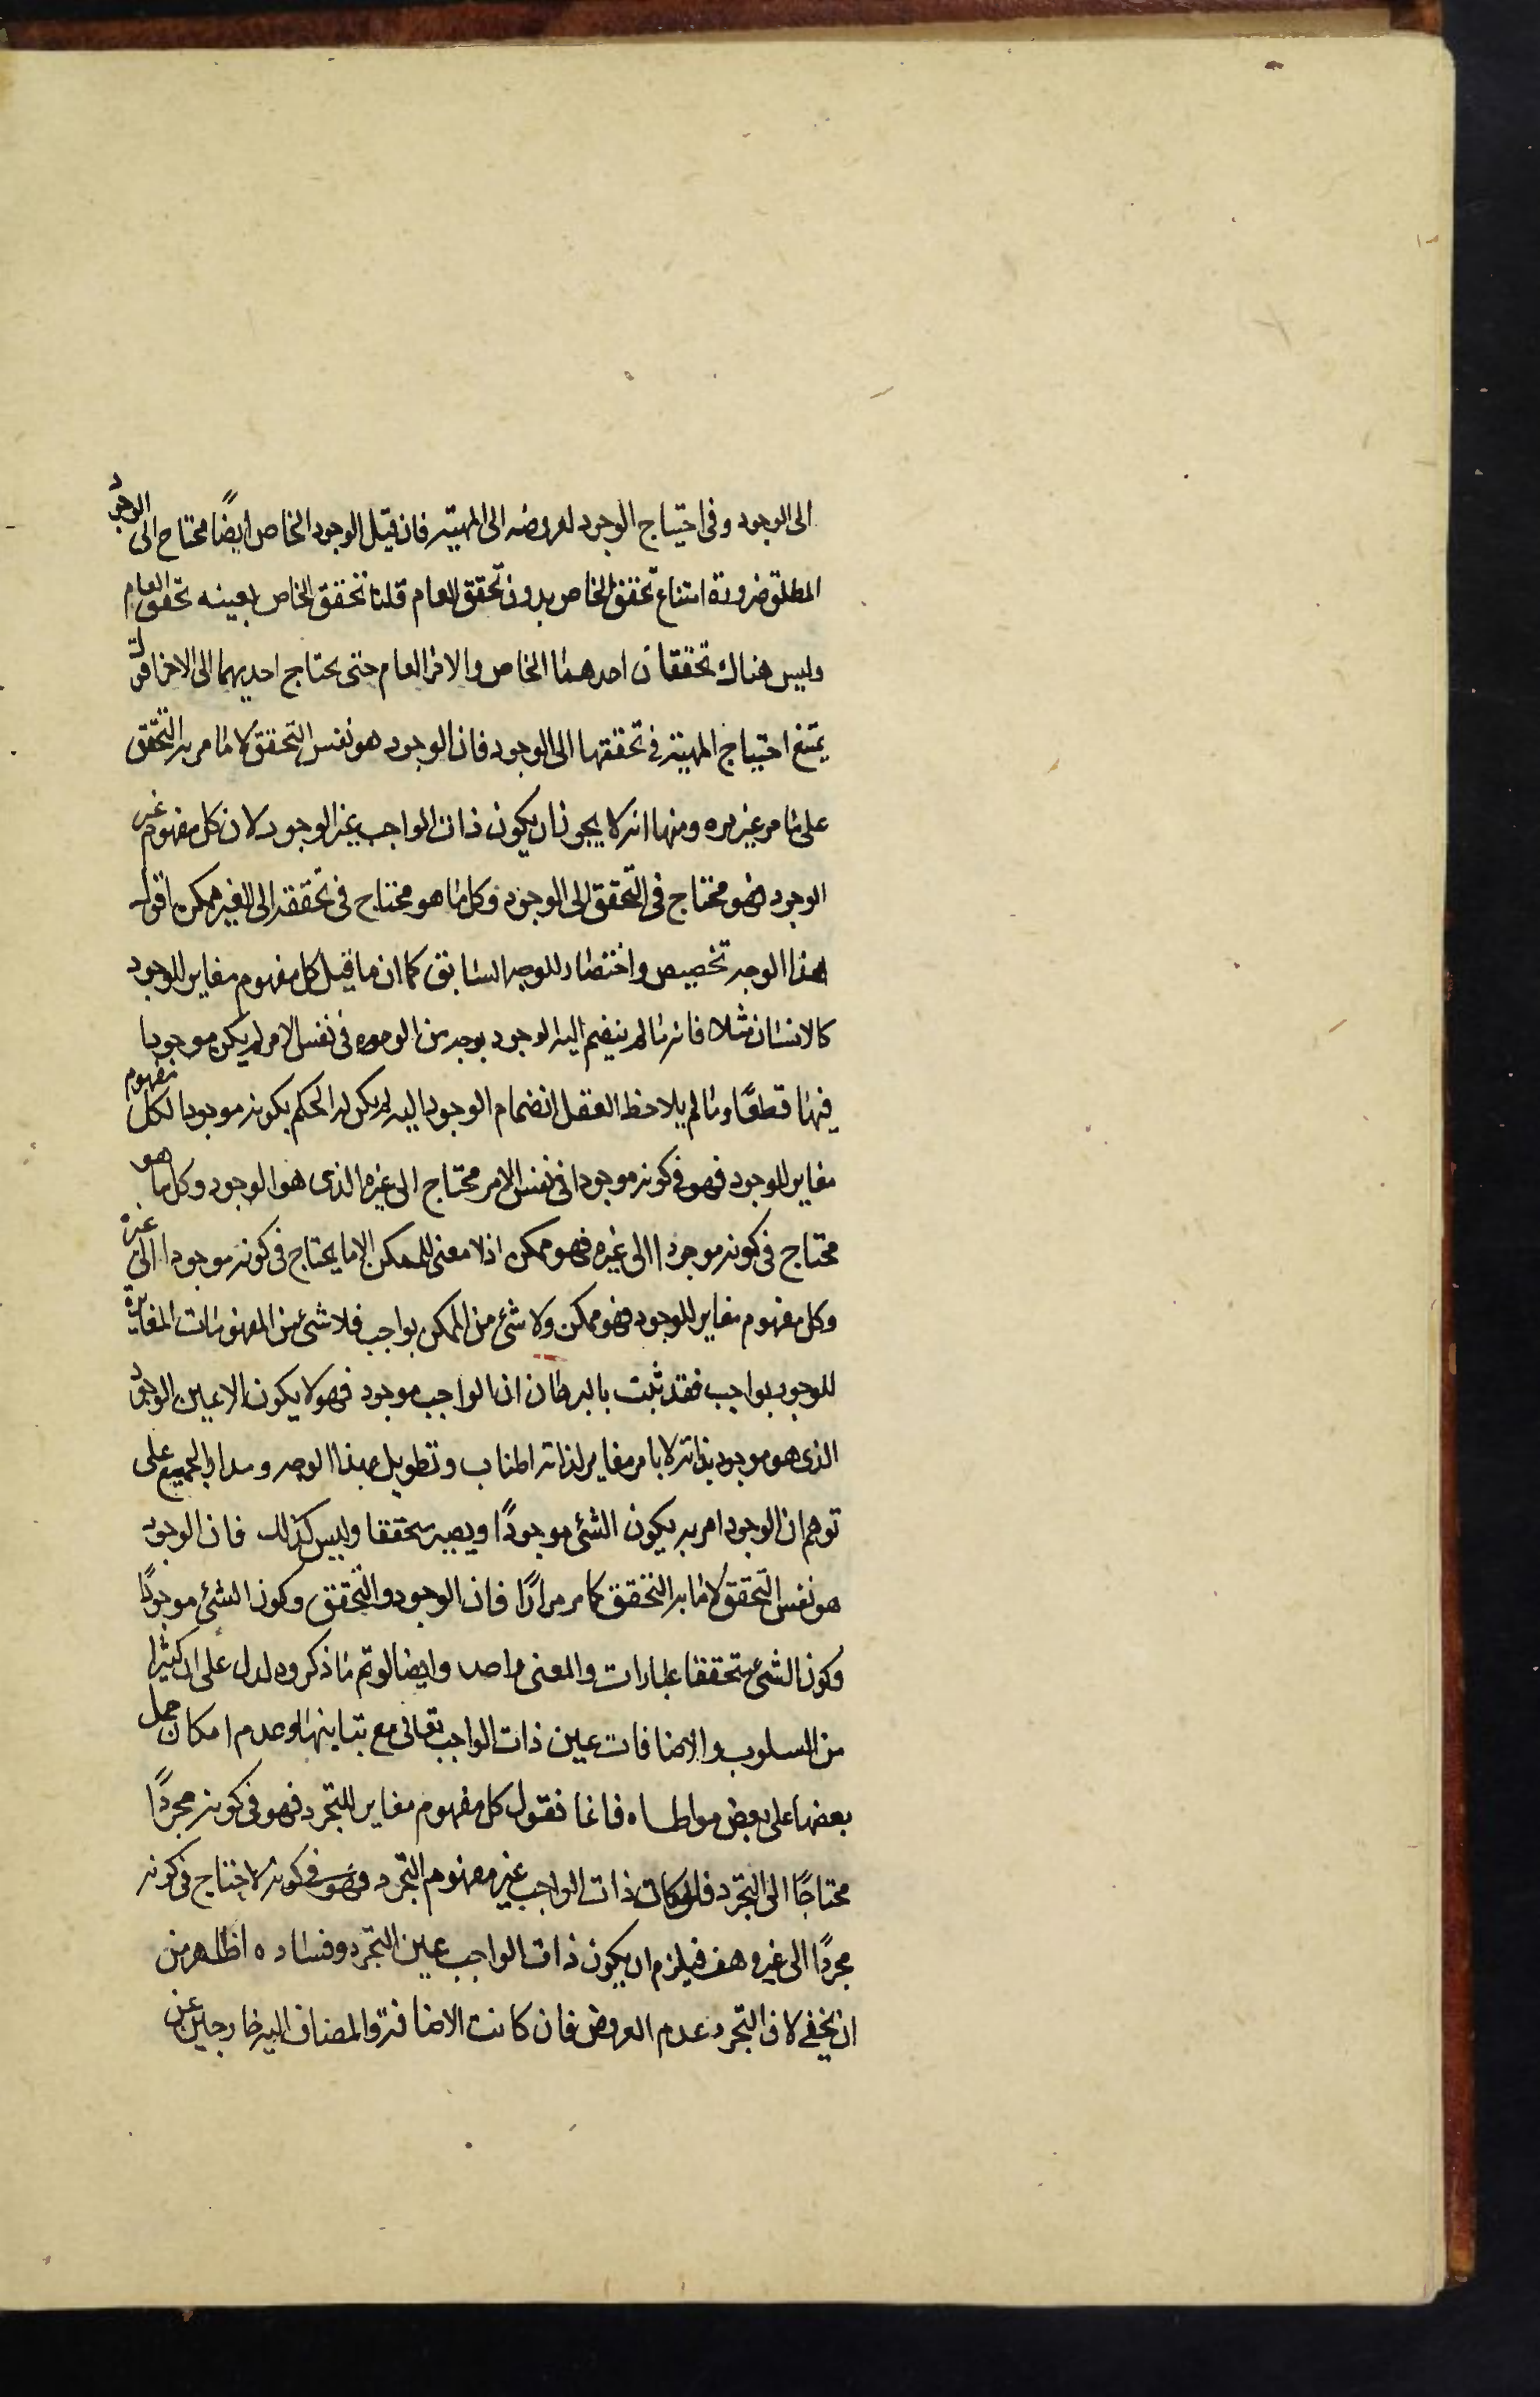 الى الوجود وفى احتياج الوجود لعروضه الى المهية فان قيل الوجود الخاص ايضًا محتاج الى الوجود
المطلق ضرورة امتناع تحقق الخاص بدون تحقق العام قلنا تحقق الخاص بعينه تحقق العام
وليس هناك تحققان احدهما الخاص والاخر العام حتى يحتاج احديهما الى الاخر اقول
يمتنع احتياج المهية فى تحققها الى الوجود فان الوجود هو نفس التحقق لا ما مر به التحقق
على ما مر غير مره ومنها انه لا يجوز ان يكون ذات الواجب غير الوجود لان كل مفهوم غير
الوجود فهو محتاج فى التحقق الى الوجود وكل ما هو محتاج فى تحققه الى الغير ممكن اقول
هذا الوجه تخصيص واختصار للوجه السابق كما ان ما قيل كل مفهوم مغاير للوجود
كالانسان مثلا فانه ما لم ينضم اليه الوجود بوجه من الوجوه فى نفس الامر لم يكن موجودا
فيها قطعًا وما لم يلاحظ العقل انضمام الوجود اليه لم يكن له الحكم بكونه موجودا لكل مفهوم
مغاير للوجود فهو فى كونه موجودا فى نفس الامر محتاج الى غيره الذى هو الوجود وكل ما هو
محتاج فى كونه موجودا الى غيره فهو ممكن اذ لا معنى للممكن الا ما يحتاج فى كونه موجودا الى غيره
وكل مفهوم مغاير للوجود فهو ممكن ولا شئ من الممكن بواجب فلا شئ من المفهومات المغايرة
للوجود بواجب فقد ثبت بالبرهان ان الواجب موجود فهو لا يكون الا عين الوجود
الذى هو موجود بذاته لا بامر مغاير لذاته اطناب وتطويل بهذا الوجه ومدار الجميع على
توهم ان الوجود امر به يكون الشئ موجودًا ويصير متحققا وليس كذلك فان الوجود
هو نفس التحقق لا ما به التحقق كما مر مرارًا فان الوجود والتحقق وكون الشئ موجودًا
وكون الشئ متحققا عبارات والمعنى واحد وايضا لو تم ما ذكروه لدل على ان كثيرا
من السلوب والاضافات عين ذات الواجب تعالى مع تباينها وعدم امكان حمل
بعضها على بعض مواطاه فانا نقول كل مفهوم مغاير للتجرد فهو فى كونه مجردًا
محتاجًا الى التجرد فلو كان ذات الواجب غير مفهوم التجرد فهو فى كونه لاحتاج فى كونه
مجردًا الى غيره هف فيلزم ان يكون ذات الواجب عين التجرد وفساده اظهر من
ان يخفى لان التجرد عدم العروض فان كانت الاضافة والمضاف اليه خارجين عن